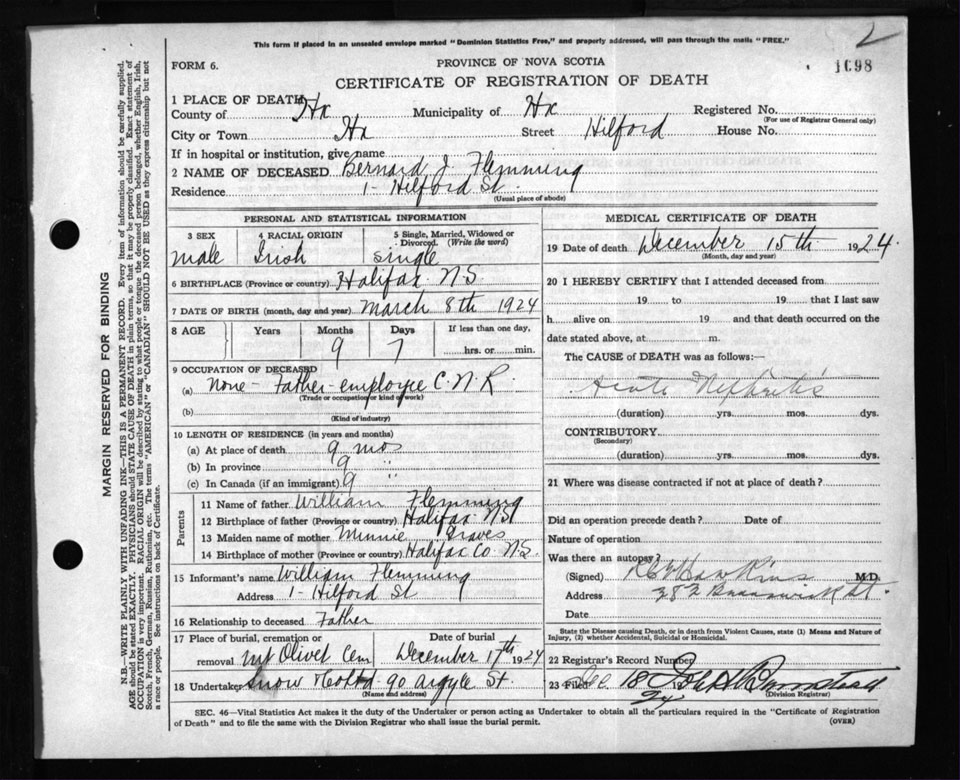 2
This form if placed in an unsealed envelope marked "Dominion Statistics Free," and properly addressed, will pass through the mails "FREE."
FORM 6.
PROVINCE OF NOVA SCOTIA
CERTIFICATE OF REGISTRATION OF DEATH
1098
1 PLACE OF DEATH
County of Hx Municipality of Hx Registered No.
(For use of Registrar General only)
City or Town Hx Street Hilford House No.
If in hospital or institution, give name
2 NAME OF DECEASED Bernard J. Flemming
Residence 1- Hilford St.
(Usual place of abode)
PERSONAL AND STATISTICAL INFORMATION
3 SEX 4 RACIAL ORIGIN 5 Single, Married, Widowed or Divorced. (Write the word)
male Irish single
6 BIRTHPLACE (Province or country) Halifax N.S.
7 DATE OF BIRTH (month, day and year) March 8th 1924
8 AGE Years Months Days If less than one day,
9 7 hrs. or min.
9 OCCUPATION OF DECEASED
(a) None - Father - employee C.N.R.
(Trade or occupation or kind of work)
(b)
(Kind of industry)
10 LENGTH OF RESIDENCE (in years and months)
(a) At place of death 9 mos
(b) In province 9 "
(c) In Canada (if an immigrant) 9
Parents
11 Name of father William Flemming
12 Birthplace of father (Province or country) Halifax NS
13 Maiden name of mother Minnie Graves
14 Birthplace of mother (Province or country) Halifax Co N.S.
15 Informant's name William Flemming
Address 1- Hilford St
16 Relationship to deceased Father
17 Place of burial, cremation or removal Date of burial
Mt Olivet Cem December 17th 1924
18 Undertaker Snow & Co Ltd. 90 Argyle St.
(Name and address)
MEDICAL CERTIFICATE OF DEATH
19 Date of death December 15th 1924.
(Month, day and year)
20 I HEREBY CERTIFY that I attended deceased from
19 to 19 that I last saw
h alive on 19 and that death occurred on the
date stated above, at m.
The CAUSE OF DEATH was as follows:
Acute Nephritis
(duration) yrs. mos. dys.
CONTRIBUTORY
(Secondary)
(duration) yrs. mos. dys.
21 Where was disease contracted if not at place of death?
Did an operation precede death? Date of
Nature of operation
Was there an autopsy?
(Signed) Hawkins M.D.
Address 282 Brunswick St.
Date
State the Disease causing Death, or in death from Violent Causes, state (1) Means and Nature of Injury, (2) whether Accidental, Suicidal or Homicidal.
22 Registrar's Record Number
23 Filed Dec 18 19 John A Barnstead
24 (Division Registrar)
SEC. 46—Vital Statistics Act makes it the duty of the Undertaker or person acting as Undertaker to obtain all the particulars required in the "Certificate of Registration
of Death" and to file the same with the Division Registrar who shall issue the burial permit. (OVER)
MARGIN RESERVED FOR BINDING
N.B.—WRITE PLAINLY WITH UNFADING INK—THIS IS A PERMANENT RECORD. Every item of information should be carefully supplied.
AGE should be stated EXACTLY. PHYSICIANS should STATE CAUSE OF DEATH in plain terms, so that it may be properly classified. Exact statement of
OCCUPATION is very important. RACIAL ORIGIN will be described by stating to what people or tongue the deceased person belonged, whether English, Irish,
Scotch, French, German, Russian, Ruthenian, etc. The terms "AMERICAN" or "CANADIAN" SHOULD NOT BE USED as they express citizenship but not
a race or people. See instructions on back of Certificate.